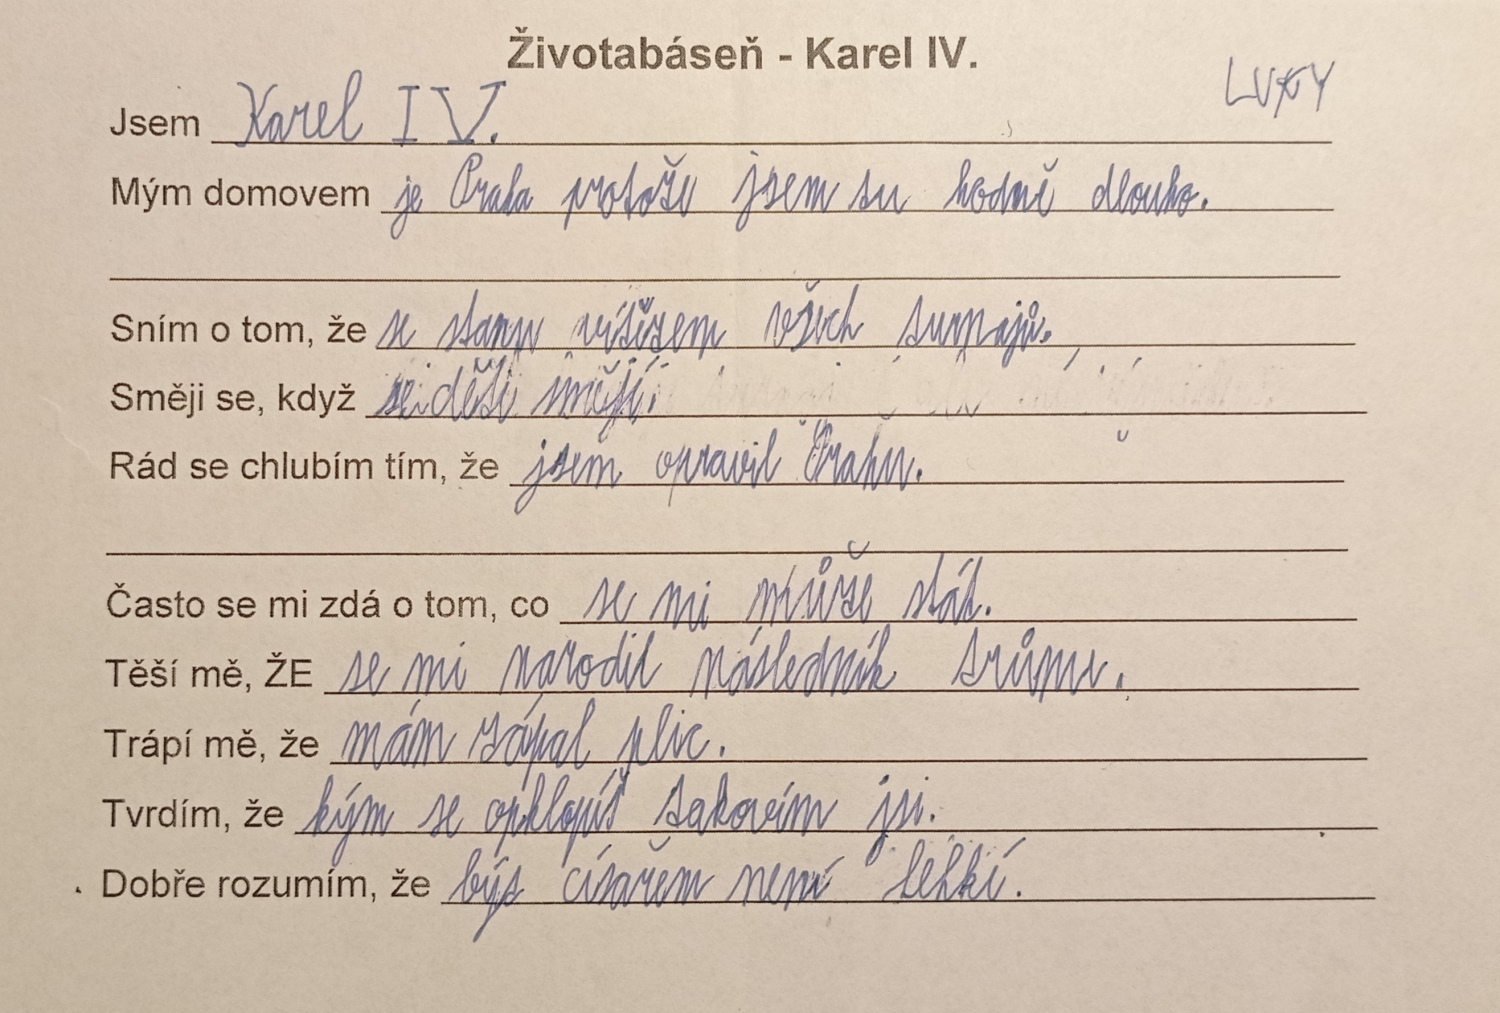 Životabáseň - Karel IV.
LUKY
Jsem Karel IV.
Mým domovem je Praha protože jsem tu hodně dlouho.
Sním o tom, že se stanu vítězem všech turnajů.
Směji se, když se děti smějí.
Rád se chlubím tím, že jsem opravil Prahu.
Často se mi zdá o tom, co se mi může stát.
Těší mě, ŽE se mi narodil následník trůmu.
Trápí mě, že mám zápal plic.
Tvrdím, že kým se opklopíš takovím jsi.
Dobře rozumím, že být císařem není lehkí.